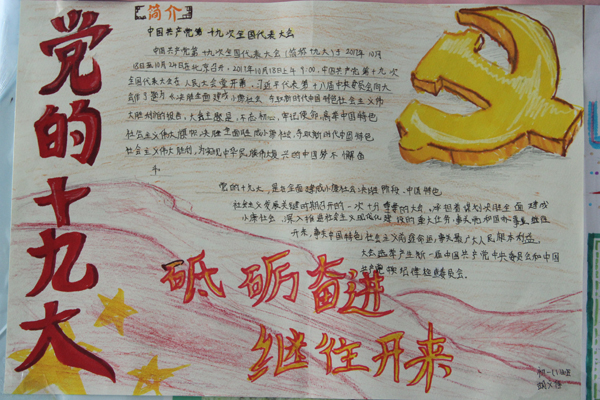 党的十九大
简介
中国共产党第十九次全国代表大会
中国共产党第十九次全国代表大会(简称十九大)于2017年10月
18日至10月24日在北京召开。2017年10月18日上午9:00,中国共产党第十九次
全国代表大会在人民大会堂开幕。习近平代表第十八届中央委员会向大
会作了题为《决胜全面建成小康社会 夺取新时代中国特色社会主义伟
大胜利》的报告。大会主题是:不忘初心,牢记使命,高举中国特色
社会主义伟大旗帜,决胜全面建成小康社会,夺取新时代中国特色
社会主义伟大胜利,为实现中华民族伟大复兴的中国梦不懈奋
斗
党的十九大,是在全面建成小康社会决胜阶段、中国特色
社会主义发展关键时期召开的一次十分重要的大会。承担着谋划决胜全面建成
小康社会、深入推进社会主义现代化建设的重大任务,事关党和国家事业继往
开来,事关中国特色社会主义前途命运,事关最广大人民根本利益。
大会选举产生新一届中国共产党中央委员会和中国
共产党 纪律检查委员会。
砥砺奋进
继往开来